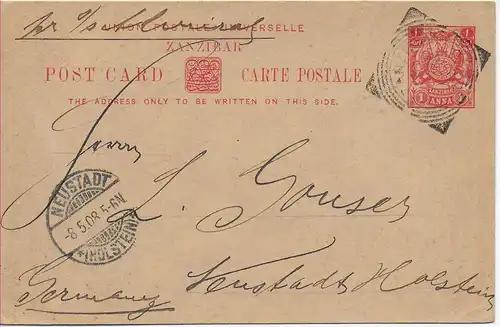 UNION POSTALE UNIVERSELLE
ZANZIBAR
POST CARD CARTE POSTALE
THE ADDRESS ONLY TO BE WRITTEN ON THIS SIDE.
1 1
ZANZIBAR
1 ANNA
Herrn
L.
NEUSTADT
-8.5.08.5-6N
*(HOLSTEIN)
Neustadt Holstein
Germany